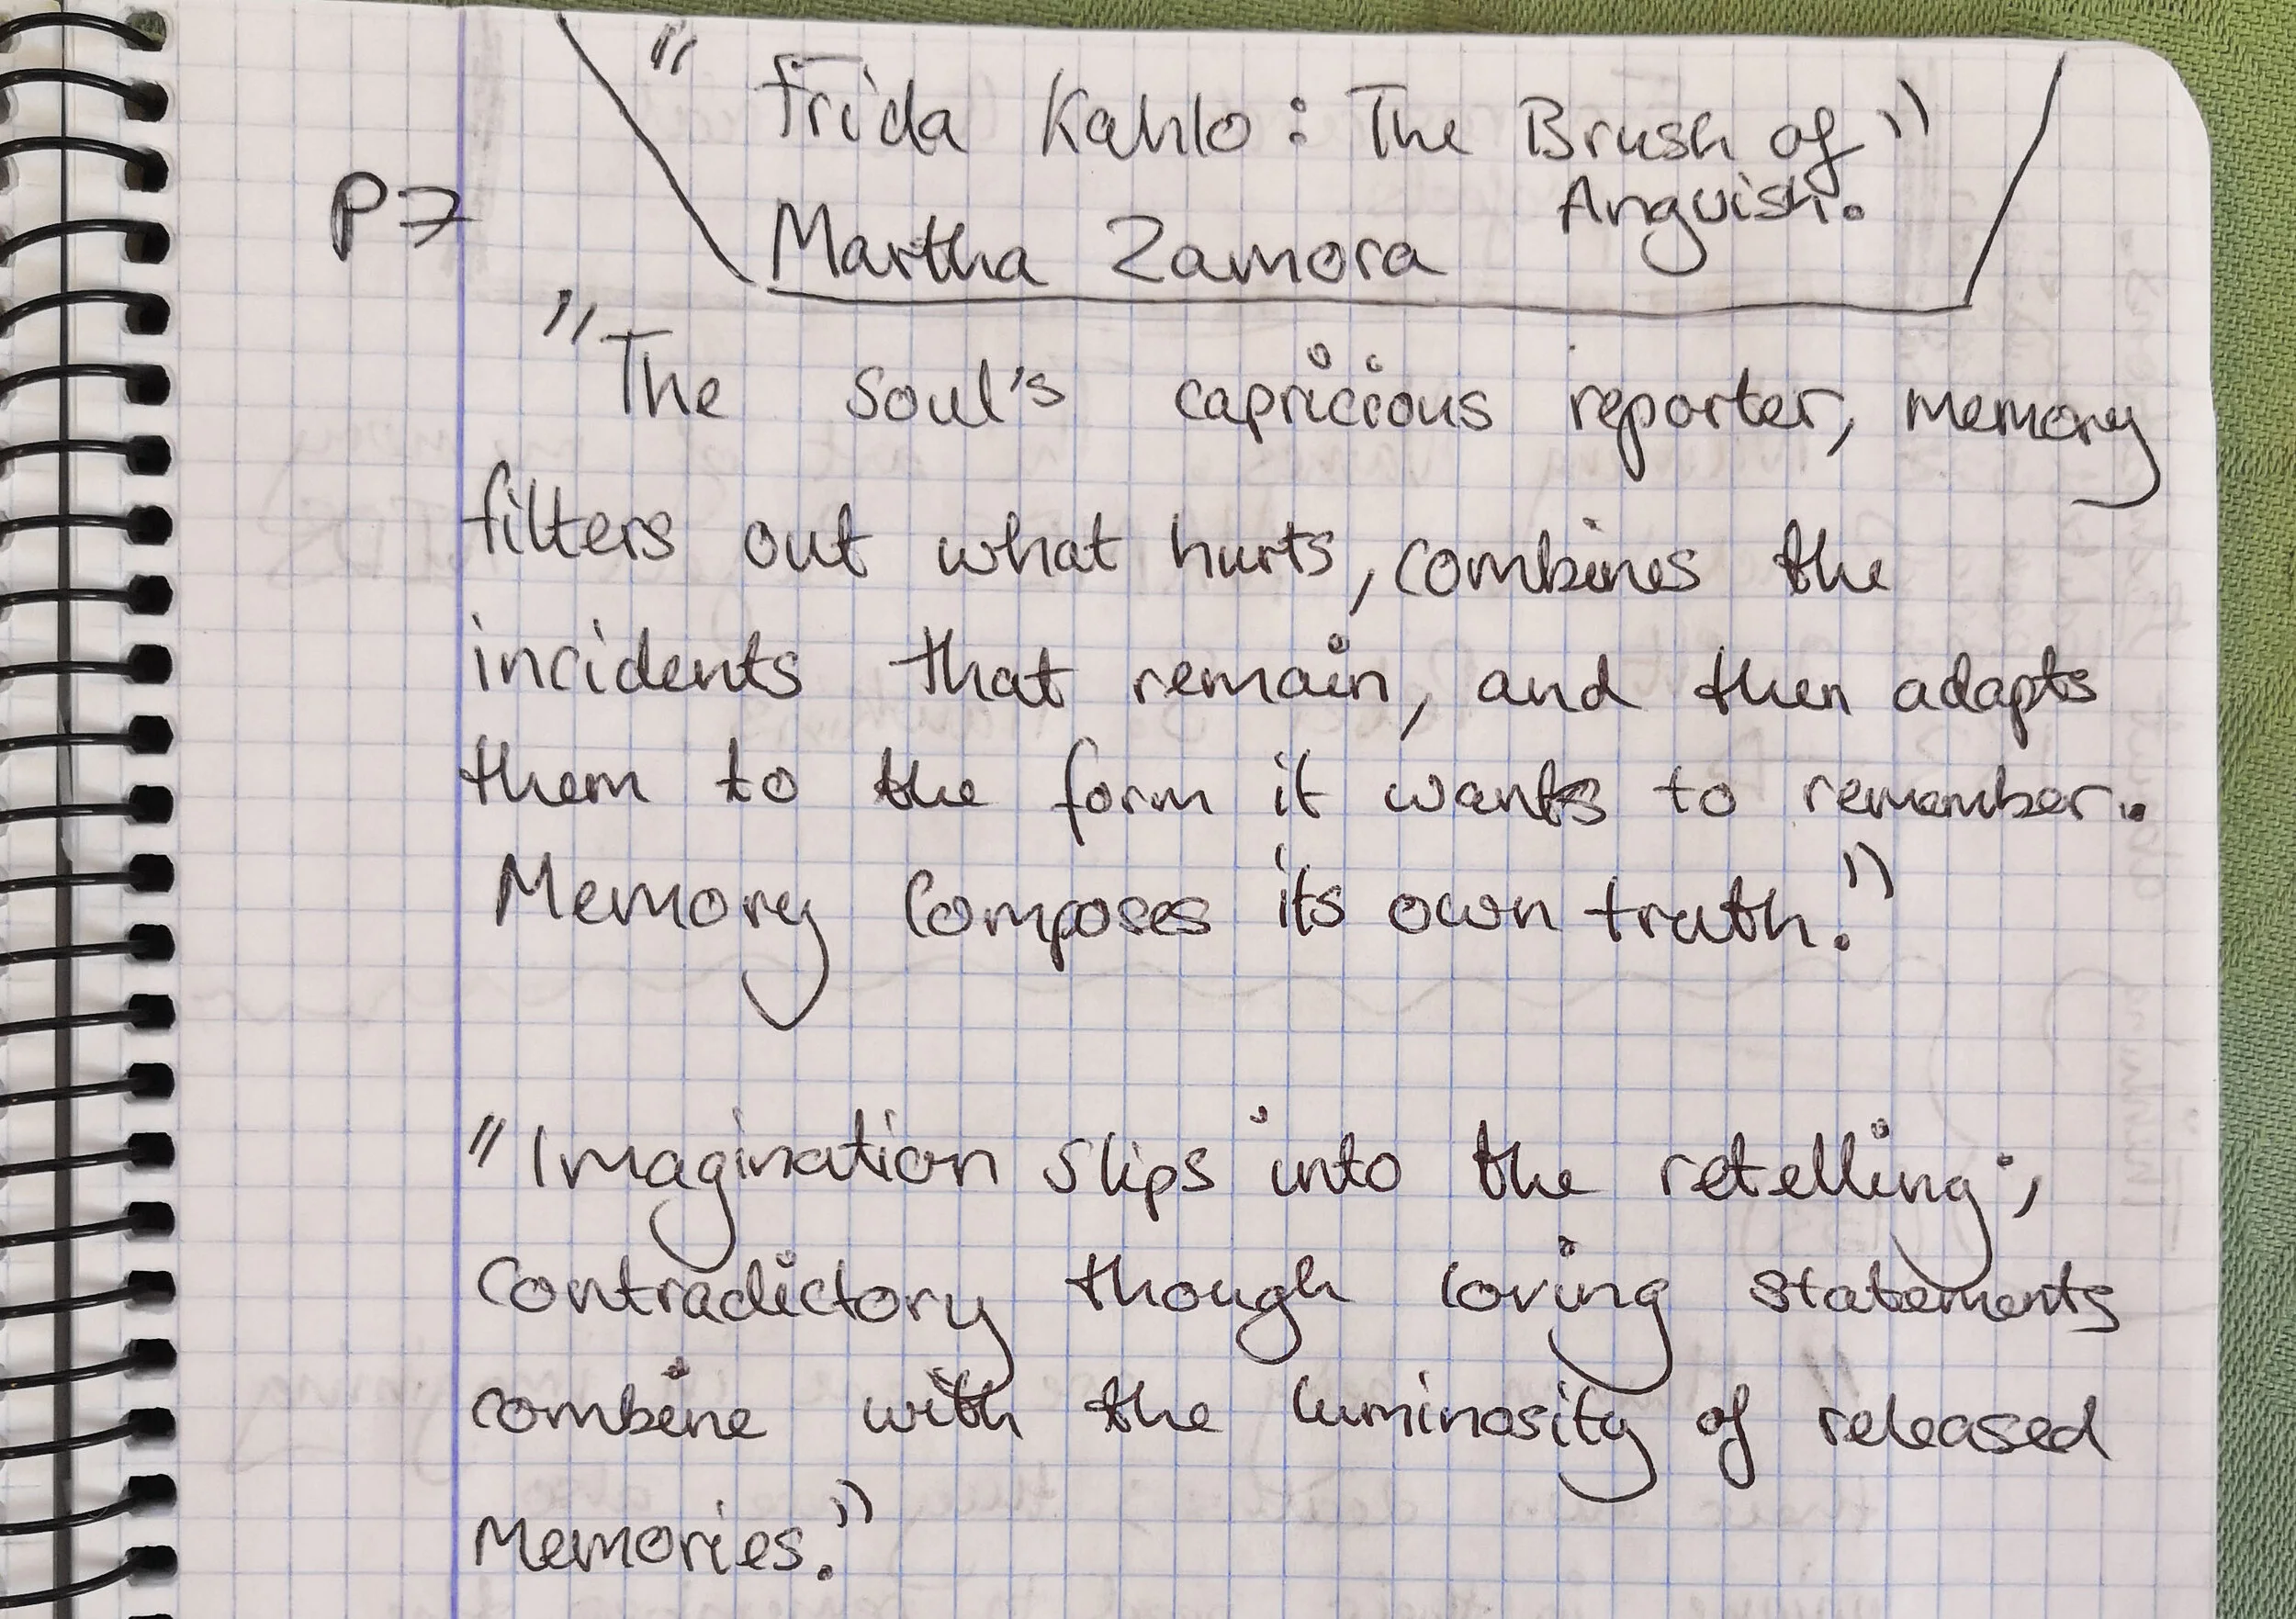 "Frida Kahlo: The Brush of"
Anguish.
P7
Martha Zamora
"The soul's capricious reporter, memory
filters out what hurts, combines the
incidents that remain, and then adapts
them to the form it wants to remember.
Memory composes its own truth."
"Imagination slips into the retelling;
contradictory though loving statements
combine with the luminosity of released
memories."